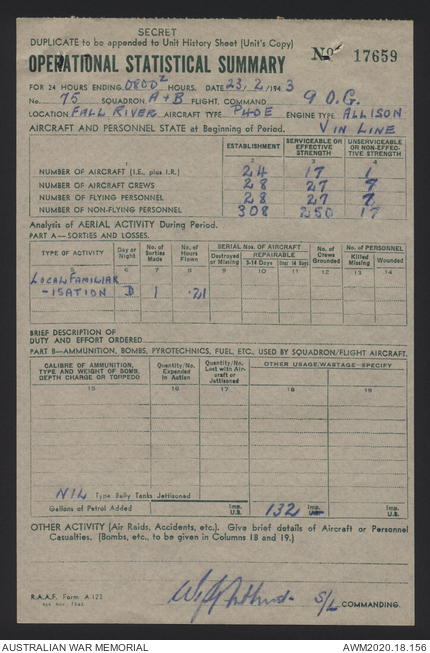 SECRET
DUPLICATE to be appended to Unit History Sheet (Unit's Copy)
No 17659
OPERATIONAL STATISTICAL SUMMARY
FOR 24 HOURS ENDING 0800Z HOURS. DATE 23/2/1943
No. 75 SQUADRON A+B FLIGHT. COMMAND 9 O.G.
LOCATION FALL RIVER AIRCRAFT TYPE P40E ENGINE TYPE ALLISON
AIRCRAFT AND PERSONNEL STATE at Beginning of Period. V IN LINE
ESTABLISHMENT SERVICEABLE OR EFFECTIVE STRENGTH UNSERVICEABLE OR NON-EFFECTIVE STRENGTH
1 2 3 4
NUMBER OF AIRCRAFT (I.E. plus I.R.) 24 17 1
NUMBER OF AIRCRAFT CREWS 28 27 7
NUMBER OF FLYING PERSONNEL 28 27 7
NUMBER OF NON-FLYING PERSONNEL 308 250 17
Analysis of AERIAL ACTIVITY During Period.
PART A—SORTIES AND LOSSES.
TYPE OF ACTIVITY Day or Night No. of Sorties Made No. of Hours Flown SERIAL Nos. OF AIRCRAFT Destroyed or Missing REPAIRABLE 3-14 Days Over 14 Days No. of Crews Grounded No. of PERSONNEL Killed Missing Wounded
5 6 7 8 9 10 11 12 13 14
LOCAL FAMILIAR
-ISATION D 1 .21
BRIEF DESCRIPTION OF
DUTY AND EFFORT ORDERED
PART B—AMMUNITION, BOMBS, PYROTECHNICS, FUEL, ETC., USED BY SQUADRON/FLIGHT AIRCRAFT.
CALIBRE OF AMMUNITION, TYPE AND WEIGHT OF BOMB, DEPTH CHARGE OR TORPEDO Quantity/No. Expended in Action Quantity/No. Lost with Aircraft or Jettisoned OTHER USAGE/WASTAGE—SPECIFY
15 16 17 18 19
NIL Type Belly Tanks Jettisoned
Gallons of Petrol Added Imp. U.S. 132 Imp. U.S. Imp. U.S.
OTHER ACTIVITY (Air Raids, Accidents, etc.). Give brief details of Aircraft or Personnel
Casualties. (Bombs, etc., to be given in Columns 18 and 19.)
S/L COMMANDING.
R.A.A.F. Form A.122
AUSTRALIAN WAR MEMORIAL AWM2020.18.156